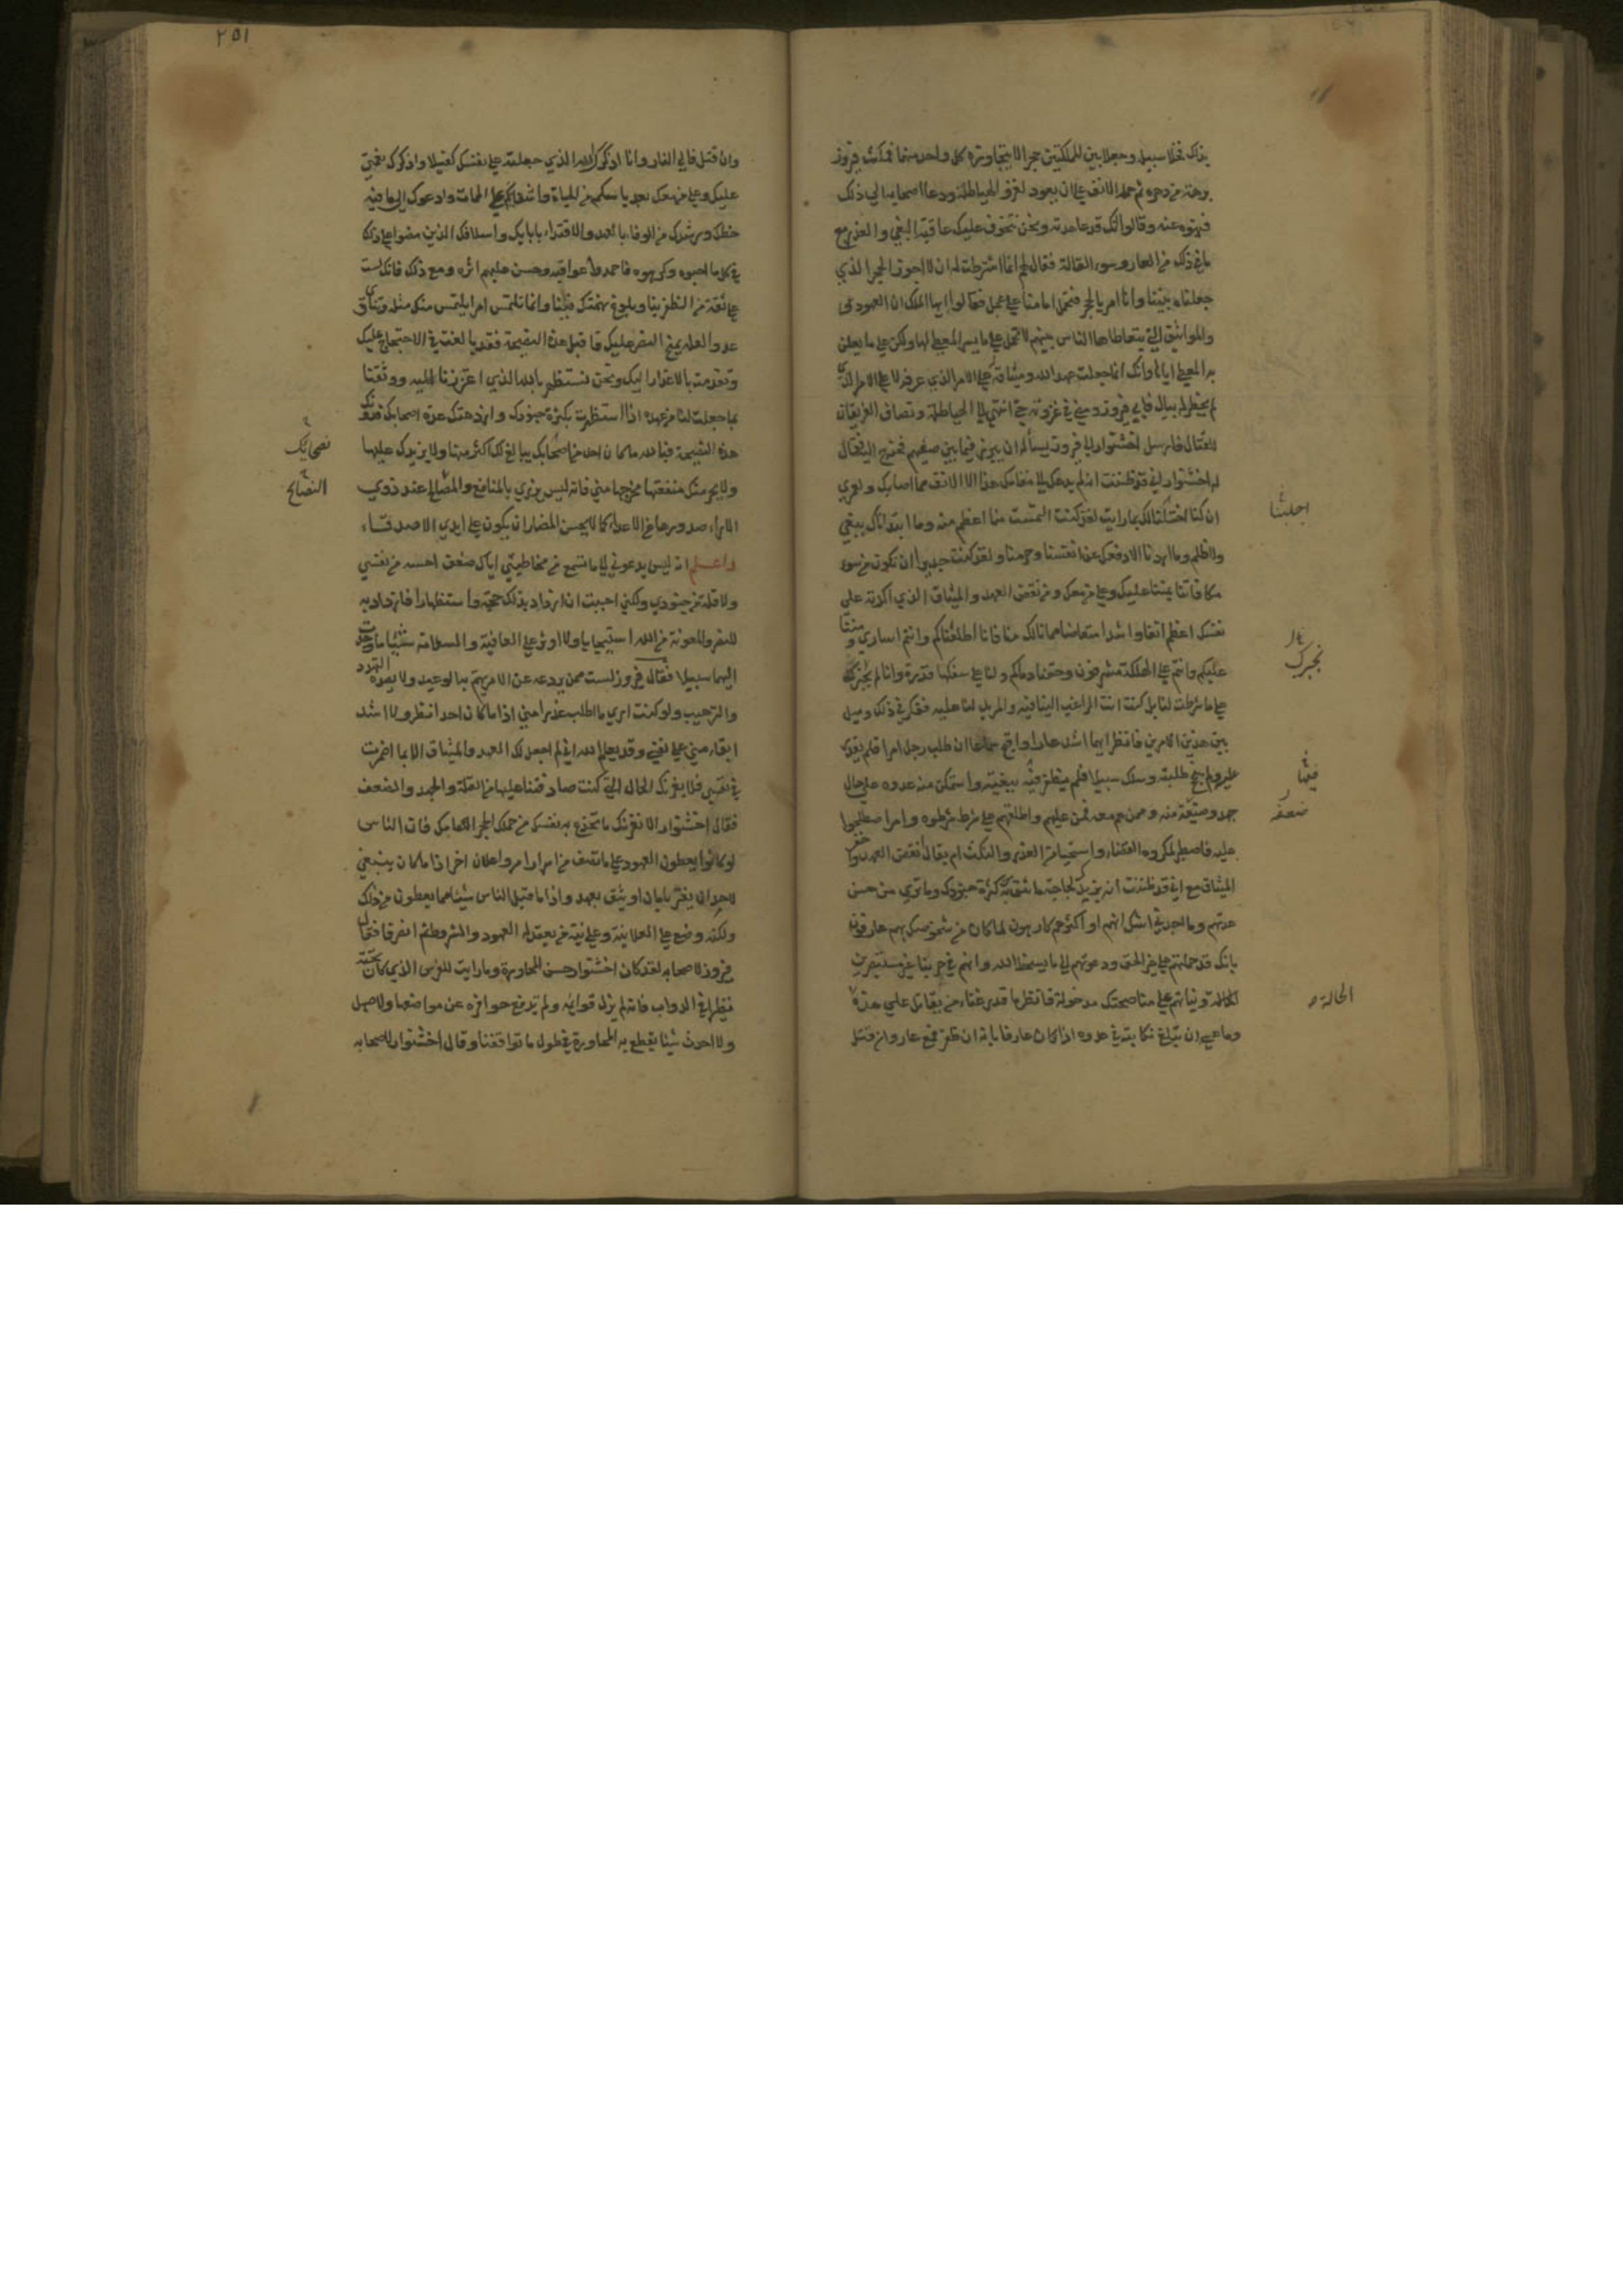 بذلك فخلا سبيله وجعلا بين المملكتين حجرا لا يتجاوزه كل واحد منهما فمكث فيروز
برهة من دهره ثم حمله الانف على ان يعود لغزو الهياطلة ودعا اصحابه الى ذلك
فنهوه عنه وقالوا انك قد عاهدته ونحن نتخوف عليك عاقبة البغي والغدر مع
ما في ذلك من العار وسوء القالة فقال لهم انما اشترطت له ان لا اجوز الحجر الذي
جعلناه بيننا وانا امر بالحجر فيحمل امامنا على عجل فقالوا ايها الملك ان العهود
والمواثيق التي يتعاطاها الناس بينهم لا تحمل على ما يسر المعطي لها ولكن على ما يعلن
به المعطي اياها وانك انما جعلت عهد الله وميثاقه على الامر الذي عرفه لا على الامر
لم يخطر له ببال فابى فيروز ومضى في غزوته حتى انتهى الى الهياطلة وتصاف الفريقان
للقتال فارسل اخشنوار الى فيروز يسأله ان يبرز فيما بين صفيهم فخرج اليه فقال
له اخشنوار اني قد ظننت انه لم يدعك الى مقامك هذا الا الانف مما اصابك ولعمري
ان كنا احتلنا لك بما رايت لقد كنت التمست منا اعظم منه وما ابتداناك ببغي
ولا ظلم وما اردنا الا دفعك عن انفسنا وحرمنا ولقد كنت جديرا ان تكون من سوء
مكافاتنا بمننا عليك وعلى من معك ومن نقض العهد والميثاق الذي اكدته على
نفسك اعظم انفا واشد امتعاضا مما نالك منا فانا اطلقناكم وانتم اسارى ومننا
عليكم وانتم على الهلكة مشرفون وحقنا دماءكم ولنا على سفكها قدرة وانا لم نجبرك
على ما شرطت لنا بل كنت انت الراغب الينا فيه والمريد لنا عليه ففكر في ذلك وميل
بين هذين الامرين فانظر ايهما اشد عارا واقبح سماعا ان طلب رجل امرا فلم يقدر
عليه ولم ينجح طلبته وسلك سبيلا فلم يظفر فيه ببغيته واستمكن منه عدوه على حال
جهد وضيقة منه وممن هم معه فمن عليهم واطلقهم على شرط شرطوه وامر اصطلحوا
عليه فاصطبر لمكروه القضاء واستحيا من الغدر والنكث ام يقال نقض العهد وخفر
الميثاق مع اني قد ظننت انه يزيدك لجاجة ما تثق به من كثرة جنودك وما ترى من حسن
عدتهم وما اجدني اشك انهم او اكثرهم كارهون لما كان من شخوصك بهم عارفون
بانك قد حملتهم على غير الحق ودعوتهم الى ما يسخط الله وانهم في حربنا غير مستبصرين
ونياتهم على مناصحتك مدخولة فانظر ما قدر غناء من يقاتل على هذه
وما عسى ان تبلغ نكايته في عدوه اذا كان عارفا بانه ان ظفر فمع عار وان قتل
اجلبنا
نجبرك
فيها
ضعفه
الحالة
٢٥١
وان قتل فالى النار وانا اذكرك الله الذي جعلته على نفسك كفيلا واذكرك نعمتي
عليك وعلى من معك بعد ياسكم من الحياة واشفائكم على الممات وادعوك الى ما فيه
حظك ورشدك من الوفاء بالعهد والاقتداء بابائك واسلافك الذين مضوا على ذلك
في كل ما احبوه وكرهوه فاحمدوا عواقبه وحسن عليهم اثره ومع ذلك فانك لست
على ثقة من الظفر بنا وبلوغ نهمتك فينا وانما تلتمس امرا يلتمس منك مثله وتناوي
عدوا لعله يمنح النصر عليك فاقبل هذه النصيحة فقد بالغت في الاحتجاج عليك
وتقدمت بالاعذار اليك ونحن نستظهر بالله الذي اعتززنا اليه ووثقنا
بما جعلت لنا من عهده اذا استظهرت بكثرة جنودك وازدهتك عدة اصحابك فدونك
هذه النصيحة فبالله ما كان احد من اصحابك يبالغ لك اكثر منها ولا يزيدك عليها
ولا يحرمنك منفعتها مخرجها مني فانه ليس يزري بالمنافع والمصالح عند ذوي
الاراء صدورها عن الاعداء كما لا يحسن المضار ان يكون على ايدي الاصدقاء
واعلم انه ليس يدعوني الى ما تسمع من مخاطبتي اياك ضعف احسه من نفسي
ولا قلة من جنودي ولكني احببت ان ازداد بذلك حجة واستظهارا فازداد به
للنصر والمعونة من الله استيجابا ولا اوثر على العافية والسلامة شيئا ما وجدت
اليهما سبيلا فقال فيروز لست ممن يردعه عن الامر يهم به الوعيد ولا يصده التهدد
والترهيب ولو كنت ارى ما اطلب غدرا مني اذا ما كان احد انظر ولا اشد
ابقاء مني على نفسي وقد يعلم الله اني لم اجعل لك العهد والميثاق الا بما اضمرت
في نفسي فلا يغرنك الحال التي كنت صادفتنا عليها من القلة والجهد والضعف
فقال اخشنوار لا يغرنك ما تخدع به نفسك من حملك الحجر امامك فان الناس
لو كانوا يعطون العهود على ما تصف من اسرار امر واعلان اخر اذا ما كان ينبغي
لاحد ان يغتر بامان او يثق بعهد واذا ما قبل الناس شيئا مما يعطون من ذلك
ولكنه وضع على العلانية وعلى نية من يعقد له العهود والشروط ثم انصرفا فقال
فيروز لاصحابه لقد كان اخشنوار حسن المحاورة وما رايت للفرس الذي كان تحته
نظيرا في الدواب فانه لم يزل قوائمه ولم يرفع حوافره عن مواضعها ولا صهل
ولا احدث شيئا يقطع به المحاورة في طول ما تواقفنا وقال اخشنوار لاصحابه
نصحائك
النصائح